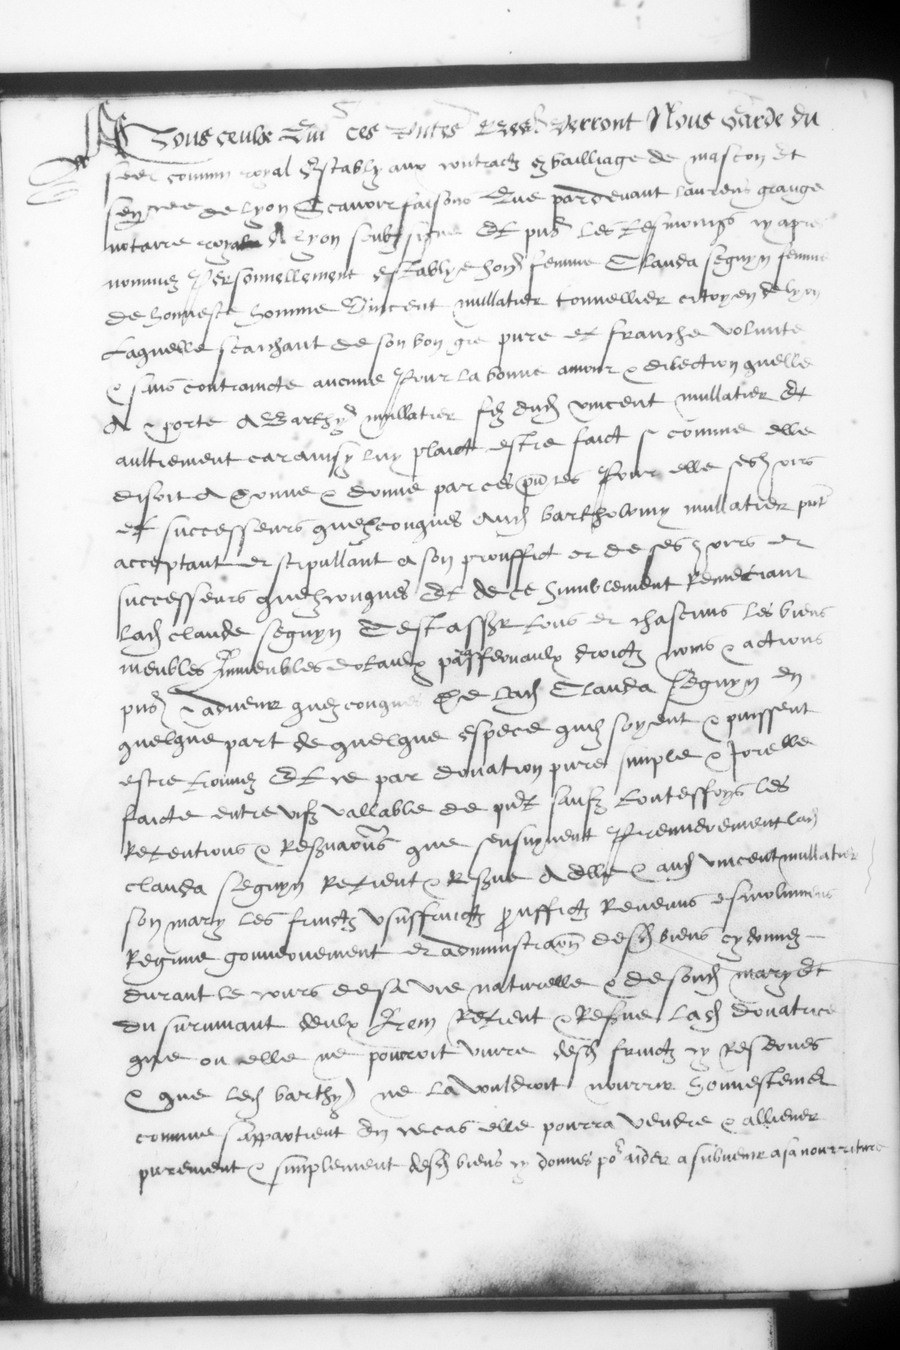 A Tous ceulx Qui ces pntes lres verront Nous Garde du
seel commun royal Establyz aux contractz es bailliage de mascon Et
senes cee de lyon Scavoir faisons Que pardevant laurens grange
notaire royal A lyon soubz signe Et pns les tesmoings cy apres
nommez Personnellement establye hon femme Clauda seguyn femme
de honneste homme Vincent mullatier tonnellier citoyen de lyon
Laquelle scaichant de son bon gre pure et franche volunte
& sans contraincte aucune Pour la bonne amour & dilection quelle
A & porte A Barthy mullatier filz dud vincent mullatier Et
aultrement car ainsy luy plaict estre faict si comme elle
disoit A donne & donne par ces pntes Pour elle ses hoirs
et successeurs quelzconques Aud bartholomy mullatier pnt
acceptant et stipullant a son prouffict et de ses hoirs et
successeurs quelzconques Et de ce humblement Remerciant
Lad claude seguyn Cest assr tous et chascuns les biens
meubles Immeubles dotaulx paraffernaulx droictz noms & actions
pns & advenir quelzconques De lad Clauda Seguyn en
quelque part de quelque espece quilz soyent & puissent
estre trouvez Et ce par donation pure simple & Irrelle
faicte entre vifz vallable de pnt saufz touteffoys les
Retentions & Reservaons que sensuyvent Premierement lad
clauda seguyn Retient & Reserve A elle & aud vincent mullatier
son mary les fruictz Usuffruictz prouffictz Revenus esmolumens
Regime gouvernement et administraon desd biens cy donnez
durant le cours de sa vie naturelle & de sond mary Et
du survivant deulx Item Retient & Reserve lad donatrice
que ou elle ne pourroit vivre desd fruictz cy Reserves
& que led barthy ne la vouldroit nourrir honnestement
comme sappartient En ce cas elle pourra vendre & alliener
purement & simplement desd biens cy donnes por aider a subvenir a sa nourriture